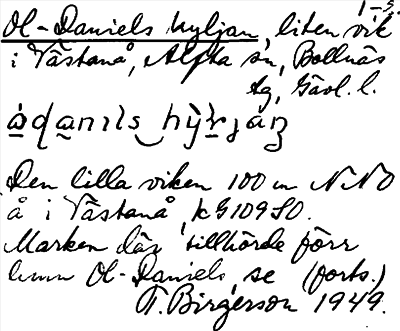 1-s.
Ol-Daniels hyljan, liten vik
i Västanå, Alfta sn, Bollnäs
tg, Gävl. l.
Den lilla viken 100 m NNO
å i Västanå, kG109SO.
Marken där tillhörde förr
hmn Ol-Daniels, se (forts.)
T. Birgerson 1949.